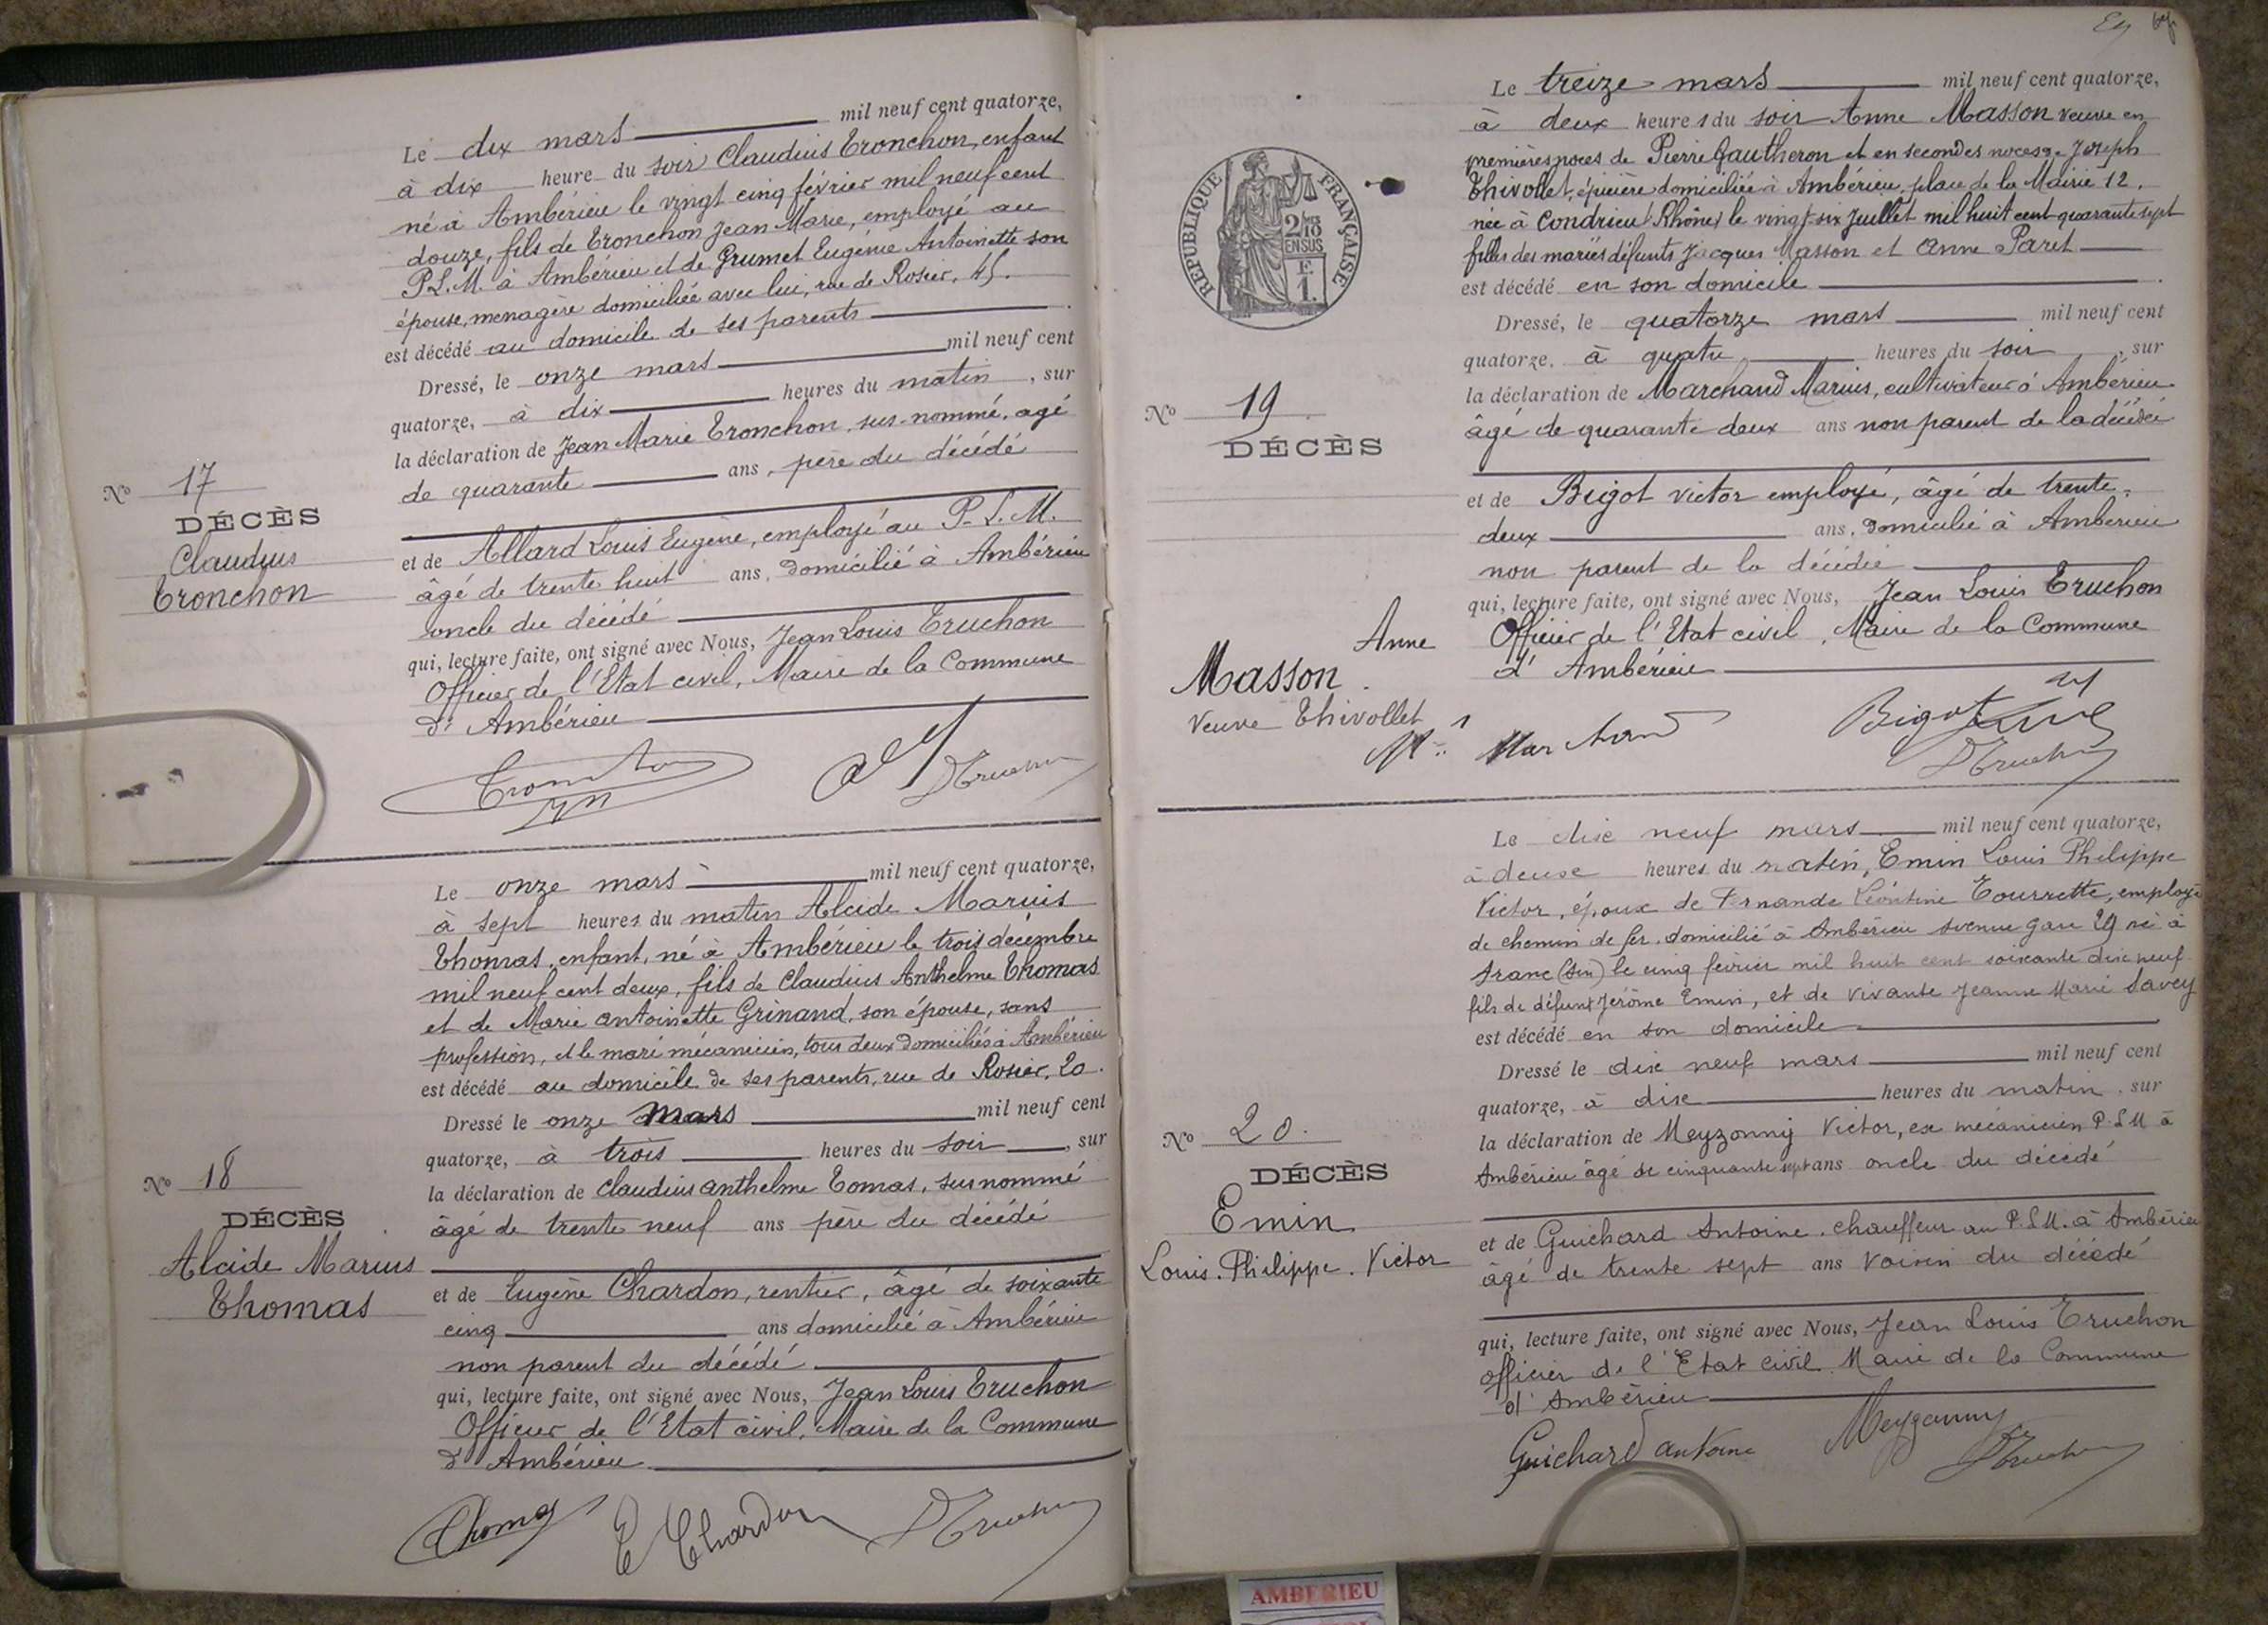 Le dix mars mil neuf cent quatorze,
à dix heure du soir Claudius Tronchon, enfant
né à Ambérieu le vingt cinq février mil neuf cent
douze, fils de Tronchon Jean Marie, employé au
P.L.M. à Ambérieu et de Grumet Eugénie Antoinette son
épouse, ménagère domiciliée avec lui, rue de Rosier, 45.
est décédé au domicile de ses parents
Dressé, le onze mars mil neuf cent
quatorze, à dix heures du matin, sur
la déclaration de Jean Marie Tronchon, sus-nommé, agé
de quarante ans, père du décédé
et de Allard Louis Eugène, employé au P.L.M.
âgé de trente huit ans, domicilié à Ambérieu
oncle du décédé
qui, lecture faite, ont signé avec Nous, Jean Louis Truchon
Officier de l'Etat civil, Maire de la Commune
d'Ambérieu
No 17
DÉCÈS
Claudius
Tronchon
Le onze mars mil neuf cent quatorze,
à sept heures du matin Alcide Marius
Thomas, enfant, né à Ambérieu le trois décembre
mil neuf cent deux, fils de Claudius Anthelme Thomas
et de Marie Antoinette Grinand, son épouse, sans
profession, et le mari mécanicien, tous deux domiciliés à Ambérieu
est décédé au domicile de ses parents, rue de Rosier, 20.
Dressé le onze mars mil neuf cent
quatorze, à trois heures du soir, sur
la déclaration de Claudius Anthelme Tomas, susnommé
âgé de trente neuf ans père du décédé
et de Eugène Chardon, rentier, âgé de soixante
cinq ans domicilié à Ambérieu
non parent du décédé
qui, lecture faite, ont signé avec Nous, Jean Louis Truchon
Officier de l'Etat civil, Maire de la Commune
d'Ambérieu
Thomas E Chardon Truchon
No 18
DÉCÈS
Alcide Marius
Thomas
REPUBLIQUE FRANÇAISE
2/10
EN SUS
F.
1.
Le treize mars mil neuf cent quatorze,
à deux heures du soir Anne Masson veuve en
premières noces de Pierre Gautheron et en secondes noces de Joseph
Thivollet, épicière domiciliée à Ambérieu, place de la Mairie 12.
née à Condrieu (Rhône) le vingt-six Juillet mil huit cent quarante sept
fille des mariés défunts Jacques Masson et Anne Paret
est décédé en son domicile
Dressé, le quatorze mars mil neuf cent
quatorze, à quatre heures du soir, sur
la déclaration de Marchand Marius, cultivateur à Ambérieu
âgé de quarante deux ans non parent de la décédée
et de Bigot Victor employé, âgé de trente-
deux ans, domicilié à Ambérieu
non parent de la décédée
qui, lecture faite, ont signé avec Nous, Jean Louis Truchon
Officier de l'Etat civil, Maire de la Commune
d'Ambérieu
Marchand Bigot Truchon
No 19
DÉCÈS
Anne
Masson
Veuve Thivollet
Le dix neuf mars mil neuf cent quatorze,
à deux heures du matin, Emin Louis Philippe
Victor, époux de Fernande Léontine Tourrette, employé
de chemin de fer, domicilié à Ambérieu avenue gare 29 né à
Aranc (Ain) le cinq février mil huit cent soixante dix neuf
fils de défunt Jérôme Emin, et de vivante Jeanne Marie Savey
est décédé en son domicile
Dressé le dix neuf mars mil neuf cent
quatorze, à dix heures du matin, sur
la déclaration de Meyzonny Victor, ex mécanicien P.L.M à
Ambérieu âgé de cinquante sept ans oncle du décédé
et de Guichard Antoine, chauffeur au P.L.M. à Ambérieu
âgé de trente sept ans voisin du décédé
qui, lecture faite, ont signé avec Nous, Jean Louis Truchon
officier de l'Etat civil Maire de la Commune
d'Ambérieu
Guichard Antoine Meyzonny Truchon
No 20.
DÉCÈS
Emin
Louis. Philippe. Victor
AMBERIEU